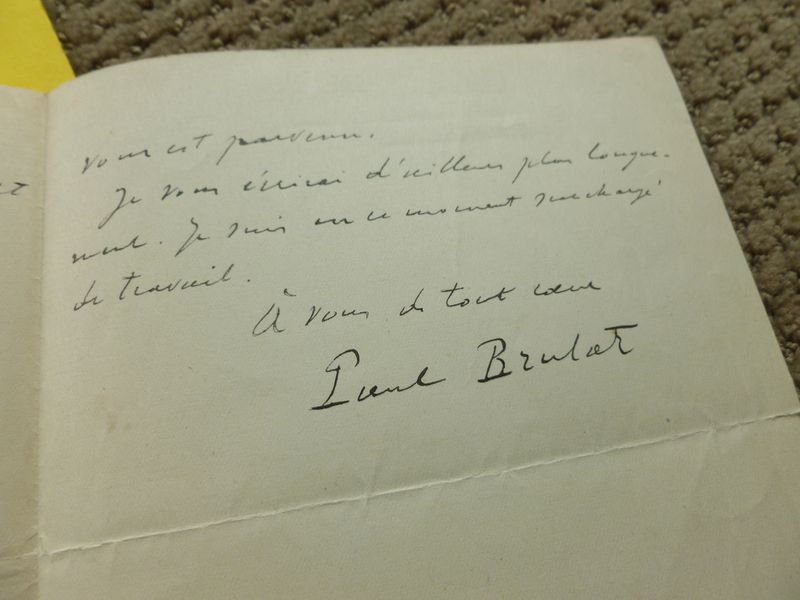 vous est parvenu.
Je vous écrirai d'ailleurs plus longue-
ment. Je suis en ce moment surchargé
de travail.
À vous de tout cœur
Paul Brulat